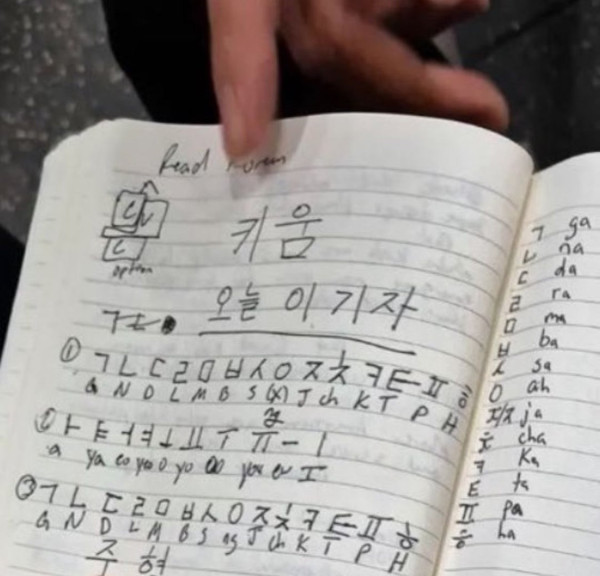 Read Korean
C V
C
option
키움
오늘 이기자
① ㄱ ㄴ ㄷ ㄹ ㅁ ㅂ ㅅ ㅇ ㅈ ㅊ ㅋ ㅌ ㅍ ㅎ
G N D L M B S (x) J ch K T P H
② ㅏ ㅑ ㅓ ㅕ ㅗ ㅛ ㅜ ㅠ ㅡ ㅣ
a ya eo yeo o yo oo you eu I
③ ㄱ ㄴ ㄷ ㄹ ㅁ ㅂ ㅅ ㅇ ㅈ ㅊ ㅋ ㅌ ㅍ ㅎ
G N D L M B S ng J ch K T P H
주 형
ㄱ ga
ㄴ na
ㄷ da
ㄹ ra
ㅁ ma
ㅂ ba
ㅅ sa
ㅇ ah
ㅈ/ㅈ ja
ㅊ cha
ㅋ Ka
ㅌ ta
ㅍ pa
ㅎ ha